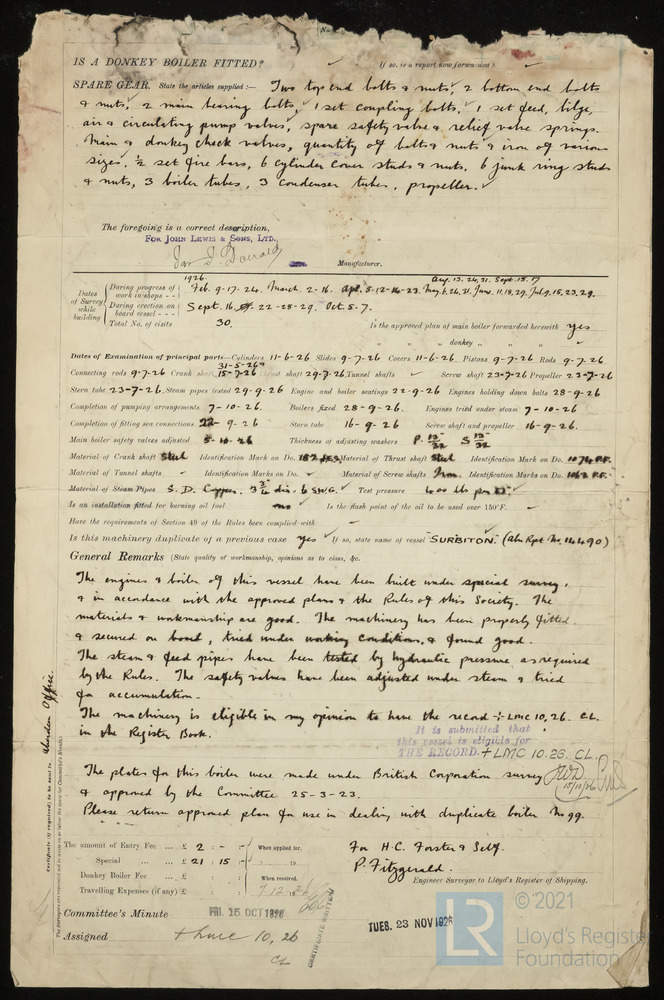 IS A DONKEY BOILER FITTED? ✓ If so, is a report now forwarded? ✓
SPARE GEAR. State the articles supplied :— Two top end bolts & nuts, 2 bottom end bolts
& nuts, 2 main bearing bolts, 1 set coupling bolts, 1 set feed, bilge,
air & circulating pump valves, spare safety valve & relief valve springs.
Main & donkey check valves, quantity of bolts & nuts & iron of various
sizes, ½ set fire bars, 6 cylinder cover studs & nuts, 6 junk ring studs
& nuts, 3 boiler tubes, 3 condenser tubes, propeller.
The foregoing is a correct description,
FOR JOHN LEWIS & SONS, LTD.
Manufacturer.
1926. Aug. 13. 24. 31. Sept. 15. 17
Dates of Survey while building
During progress of work in shops - - Feb. 9-17-24. March. 2-16. Apl. 5-12-14-23. May 6. 26. 31. June. 11. 18. 29. July 9. 15. 23. 29.
During erection on board vessel - - - Sept. 16. 22-28-29. Oct. 5-7.
Total No. of visits 30.
Is the approved plan of main boiler forwarded herewith yes
" " " donkey " " "
Dates of Examination of principal parts—Cylinders 11-6-26 Slides 9-7-26 Covers 11-6-26 Pistons 9-7-26 Rods 9-7-26
Connecting rods 9-7-26 Crank shaft 31-5-26 15-7-26 Thrust shaft 29-7-26 Tunnel shafts ✓ Screw shaft 23-7-26 Propeller 23-7-26
Stern tube 23-7-26 Steam pipes tested 29-9-26 Engine and boiler seatings 22-9-26 Engines holding down bolts 28-9-26
Completion of pumping arrangements 7-10-26. Boilers fixed 28-9-26. Engines tried under steam 7-10-26
Completion of fitting sea connections 22-9-26 Stern tube 16-9-26 Screw shaft and propeller 16-9-26.
Main boiler safety valves adjusted 5-10-26 Thickness of adjusting washers P. 13/32 S 13/32
Material of Crank shaft Steel Identification Mark on Do. Material of Thrust shaft Steel Identification Mark on Do. 1074 P.F.
Material of Tunnel shafts ✓ Identification Marks on Do. ✓ Material of Screw shafts Iron. Identification Marks on Do. 1062 P.F.
Material of Steam Pipes S. D. Copper. 3¾ dia. 6 S.W.G. ✓ Test pressure 400 lb per □"
Is an installation fitted for burning oil fuel no ✓ Is the flash point of the oil to be used over 150°F. ✓
Have the requirements of Section 49 of the Rules been complied with ✓
Is this machinery duplicate of a previous case yes ✓ If so, state name of vessel "SURBITON". (Abn Rpt No. 14490)
General Remarks (State quality of workmanship, opinions as to class, &c.
The engines & boiler of this vessel have been built under special survey,
& in accordance with the approved plans & the Rules of this Society. The
materials & workmanship are good. The machinery has been properly fitted
& secured on board, tried under working conditions, & found good.
The steam & feed pipes have been tested by hydraulic pressure as required
by the Rules. The safety valves have been adjusted under steam & tried
for accumulation.
The machinery is eligible in my opinion to have the record + LMC 10, 26. CL.
in the Register Book.
It is submitted that
this vessel is eligible for
THE RECORD. + LMC 10.26. CL.
The plates for this boiler were made under British Corporation survey
& approved by the Committee 25-3-23.
15/10/26
Please return approved plan for use in dealing with duplicate boiler No 99.
Certificate (if required) to be sent to Aberdeen Office.
The amount of Entry Fee ... £ 2 : - : When applied for,
Special ... ... £ 21 : 15 : 19
Donkey Boiler Fee ... £ : : When received,
Travelling Expenses (if any) £ : : 7.12.26
For H.C. Forster & Self.
P. Fitzgerald.
Engineer Surveyor to Lloyd's Register of Shipping.
CERTIFICATE WRITTEN
Committee's Minute FRI. 15 OCT 1926 TUES. 23 NOV 1926
Assigned + Lmc 10, 26
CL
LR
© 2021
Lloyd's Register
Foundation